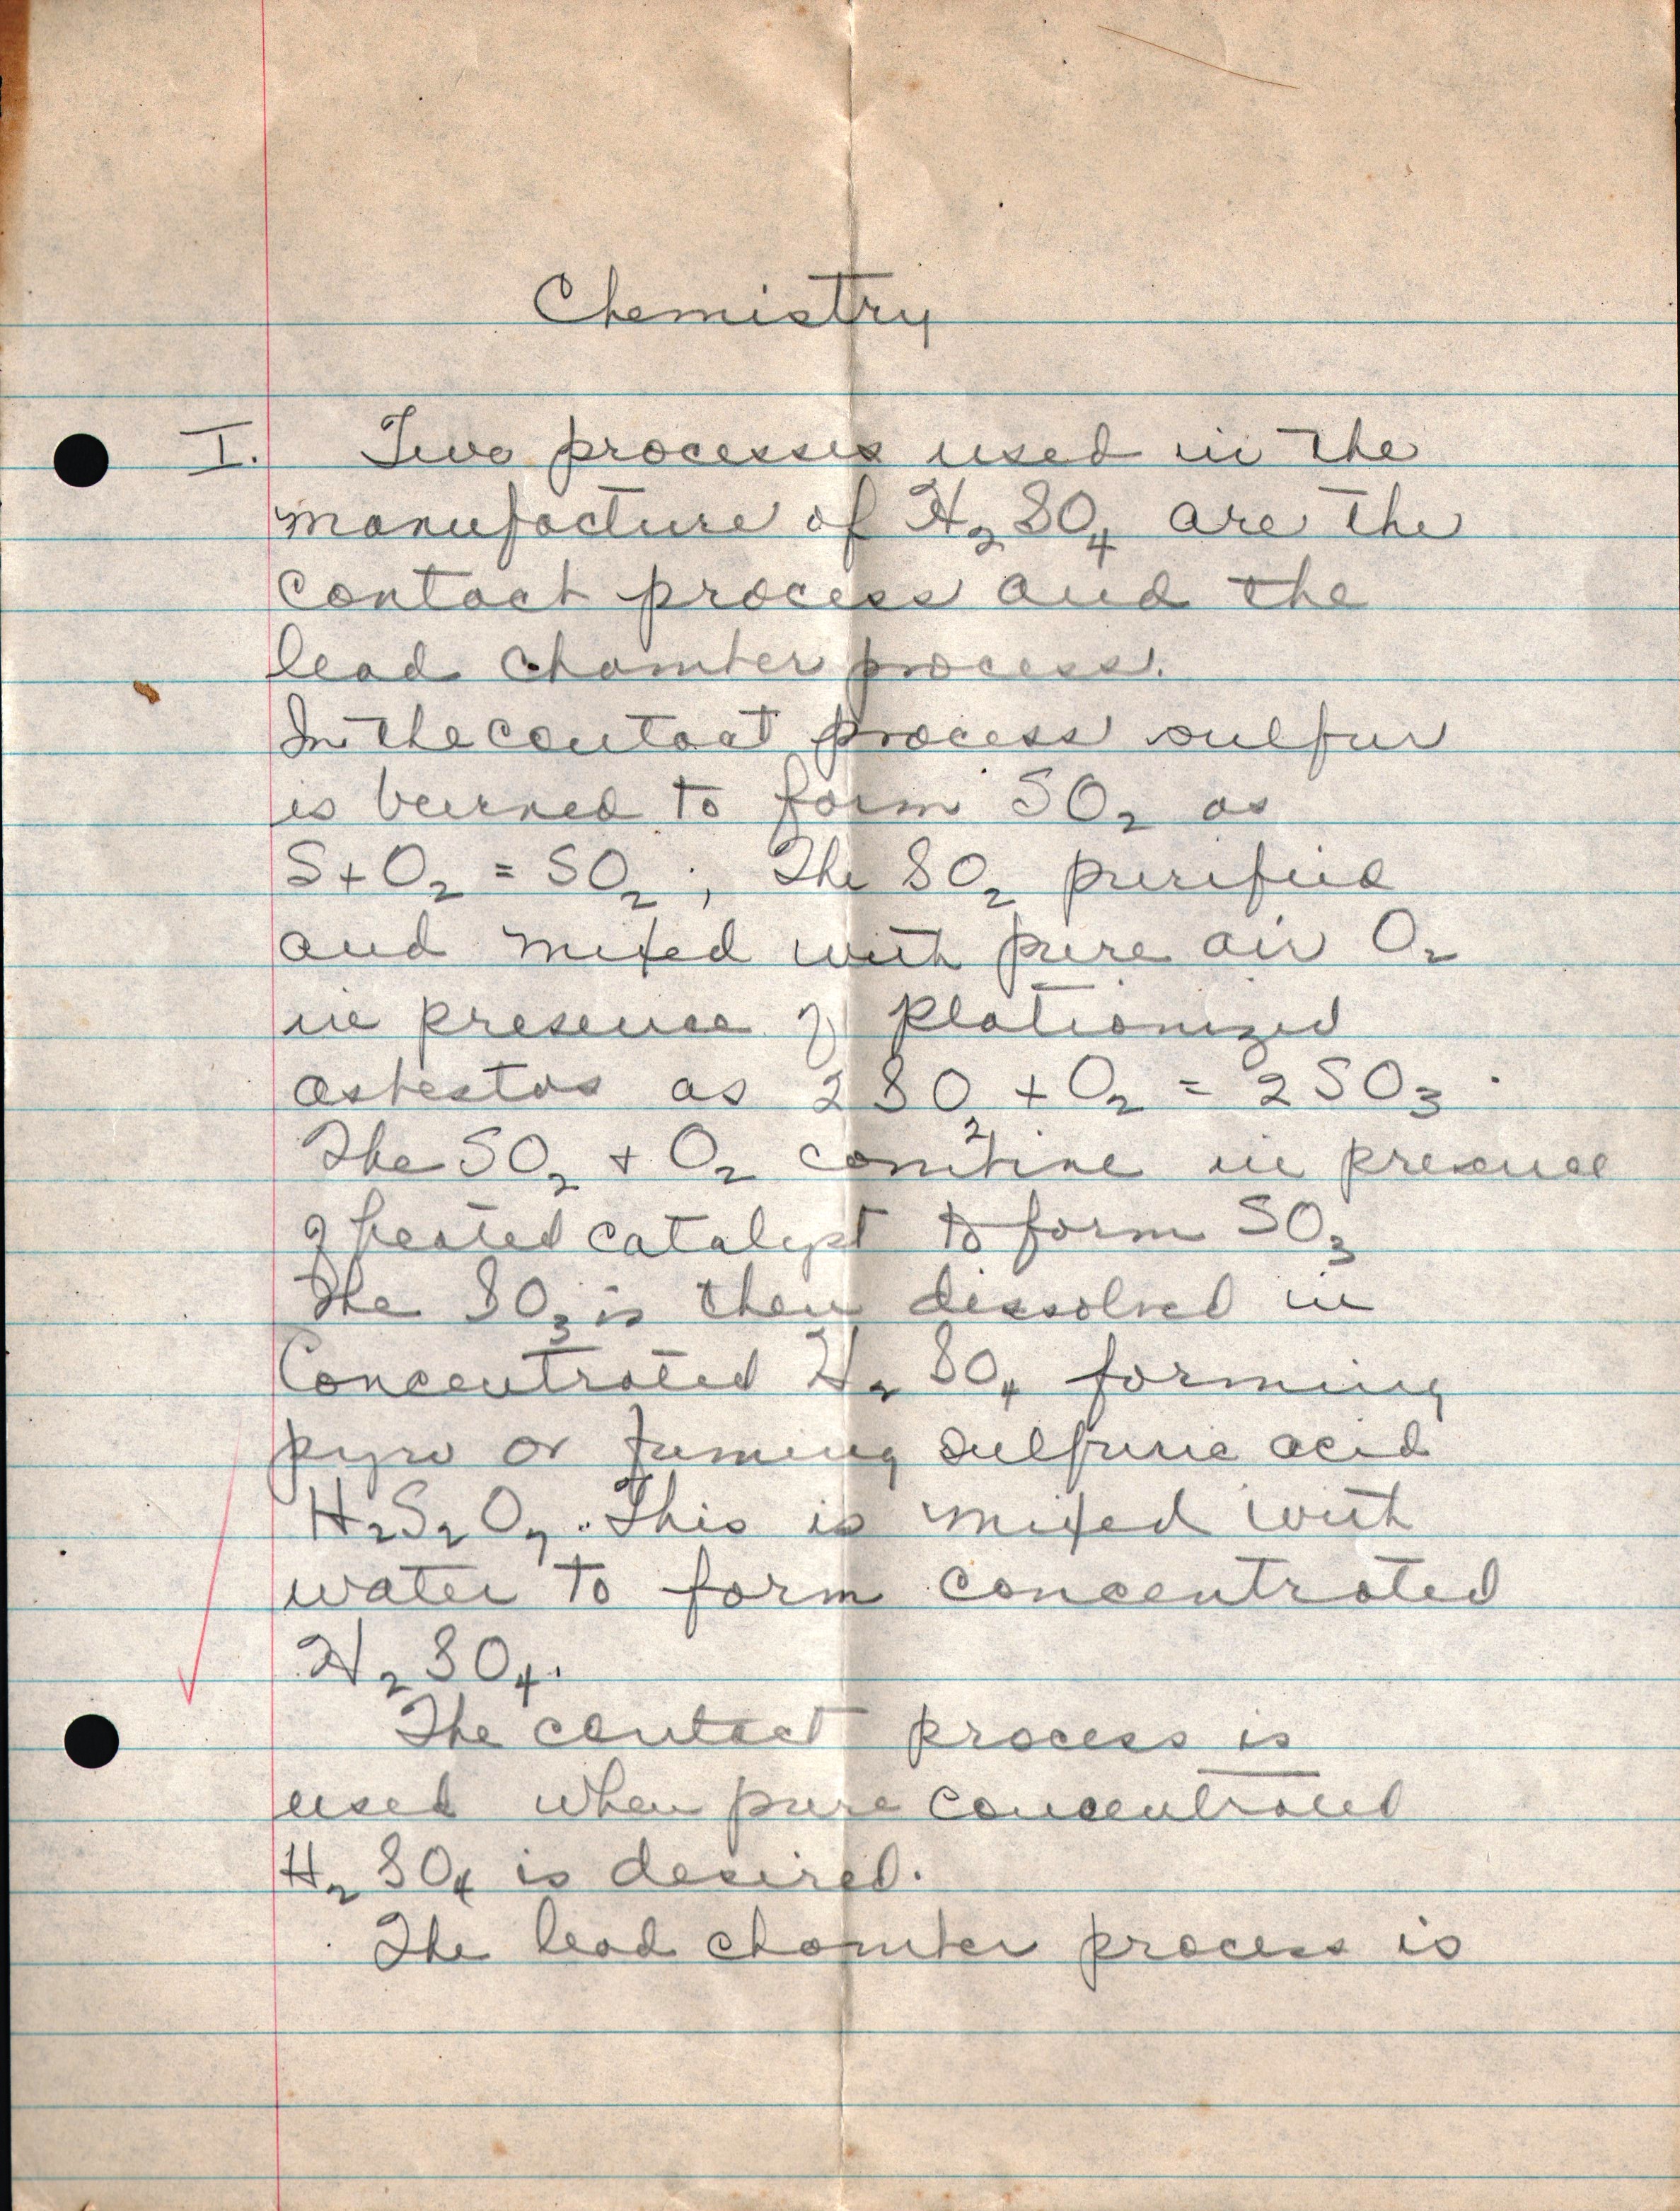 Chemistry
I. Two processes used in the
manufacture of H₂SO₄ are the
contact process and the
lead chamber process.
In the contact process sulfur
is burned to form SO₂ as
S + O₂ = SO₂ ; The SO₂ purified
and mixed with pure air O₂
in presence of plationized
asbestos as 2SO₂ + O₂ = 2SO₃.
The SO₂ + O₂ combine in presence
of heated catalyst to form SO₃
The SO₃ is then dissolved in
Concentrated H₂SO₄ forming
pyro or fuming sulfuric acid
H₂S₂O₇. This is mixed with
water to form concentrated
H₂SO₄.
The contact process is
used when pure concentrated
H₂SO₄ is desired.
The lead chamber process is